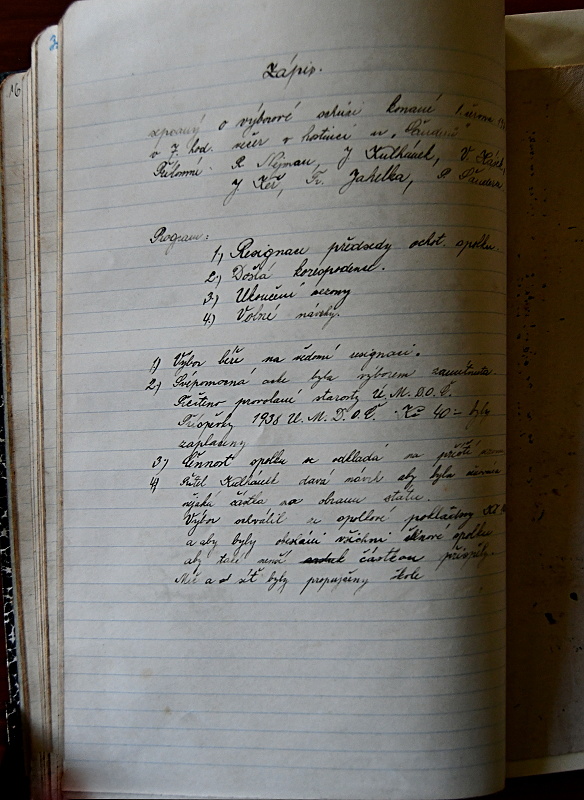 16
3.
Zápis.
sepsaný o výborové schůzi konané 1. června
v 7 hod. večer v hostinci u
Přítomni: R. Nejman, J Kulhánek, V.
J Keř, Fr. Jahelka, R.
Program:
1.) Resignace předsedy ochot. spolku.
2.) Došlá korespodence.
3.) Ukončení sezony
4.) Volné návrhy.
1) Výbor béře na vědomí resignaci.
2) Svépomocná akce byla výborem zamítnuta.
Přečteno provolání starosty Ú. M. D. O. Č.
Příspěvky 1938 Ú. M. D. O. Č. Kč 40 = byly
zaplaceny
3) Činnost spolku se odkládá na příští sezonu
4) Přítel Kulhánek dává návrh aby byla věnována
nějaká částka na obranu státu.
Výbor schválil ze spolkové pokladny Kč
a aby byly obesláni všichni členové spolku
aby také menší částkou přispěly.
Míč a síť byly propujčeny škole